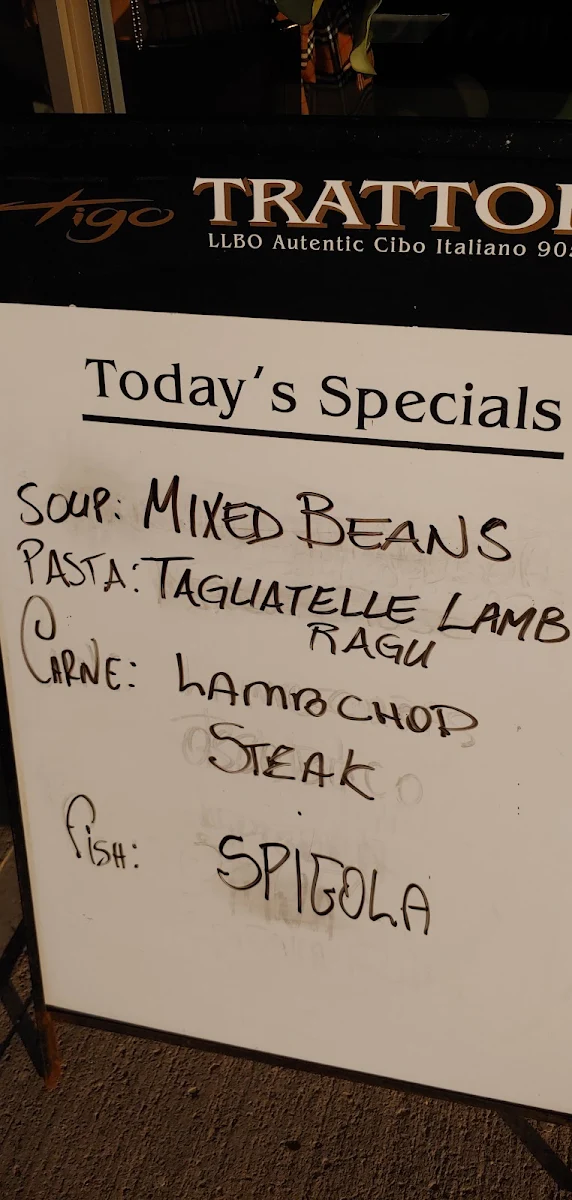 tigo TRATTO
LLBO Autentic Cibo Italiano 90
Today's Specials
SOUP: MIXED BEANS
PASTA: TAGLIATELLE LAMB
RAGU
CARNE: LAMB CHOP
STEAK
FISH: SPIGOLA